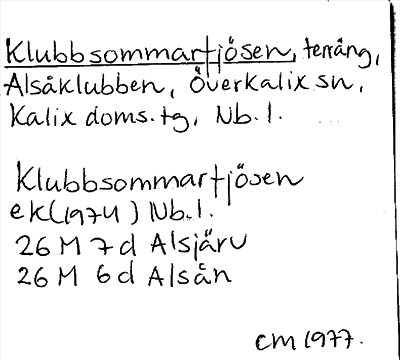 Klubbsommartjösen, terräng,
Alsåklubben, Överkalix sn,
Kalix doms.tg, Nb.l.
Klubbsommartjösen
ek(1974) Nb.l.
26 M 7d Alsjärv
26 M 6d Alsån
CM 1977.